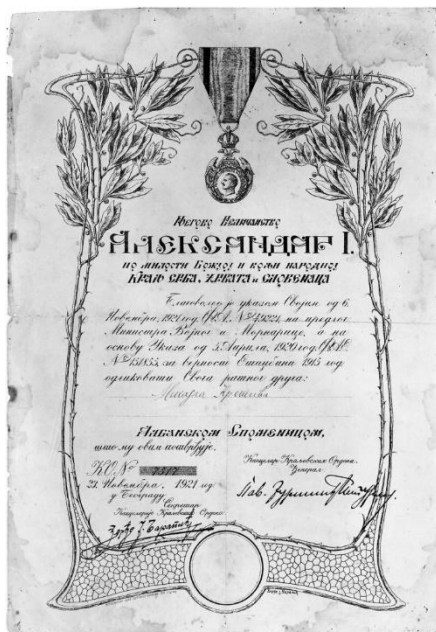 Његово Величанство
АЛЕКСАНДАР I.
по милости Божјој и вољи народној
КРАЉ СРБА, ХРВАТА и СЛОВЕНАЦА
Благоволео је указом Својим од 6.
Новембра, 1921 год. на предлог
Министра Војног и Морнарице, а на
основу Указа од 5. Априла, 1920 год.
за верност Отаџбини 1915 год.
одликовати Свога ратног друга:
АЛБАНСКОМ СПОМЕНИЦОМ,
што му овим потврђује,
К.О. №
21. Новембра, 1921 год.
у Београду
Секретар
Канцеларије Краљевских Ордена
Канцелар Краљевских Ордена
Ђенерал